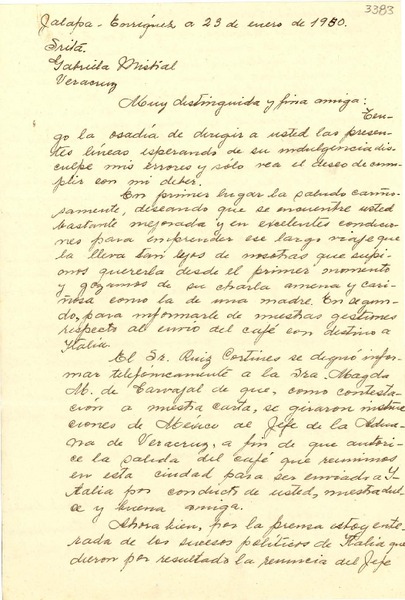 3383
Jalapa-Enríquez a 23 de enero de 1950.
Srita.
Gabriela Mistral
Veracruz
Muy distinguida y fina amiga:
Ten-
go la osadía de dirigir a usted las presen-
tes líneas esperando de su indulgencia dis-
culpe mis errores y sólo vea el deseo de cum-
plir con mi deber.
En primer lugar la saludo cariño-
samente, deseando que se encuentre usted
bastante mejorada y en excelentes condicio-
nes para emprender ese largo viaje que
la lleva tan lejos de nosotras que supi-
mos quererla desde el primer momento
y gozamos de su charla amena y cari-
ñosa como la de una madre. En segun-
do, para informarle de nuestras gestiones
respecto al envío del café con destino a
Italia.
El Sr. Ruiz Cortines se dignó infor-
mar telefónicamente a la Sra. Magda
M. de Carvajal de que, como contesta-
ción a nuestra carta, se giraron instruc-
ciones de México al Jefe de la Adua-
na de Veracruz, a fin de que autori-
ce la salida del café que reunimos
en esta ciudad para ser enviado a I-
talia por conducto de usted, nuestra dul-
ce y buena amiga.
Ahora bien, por la prensa estoy ente-
rada de los sucesos políticos de Italia que
dieron por resultado la renuncia del Jefe